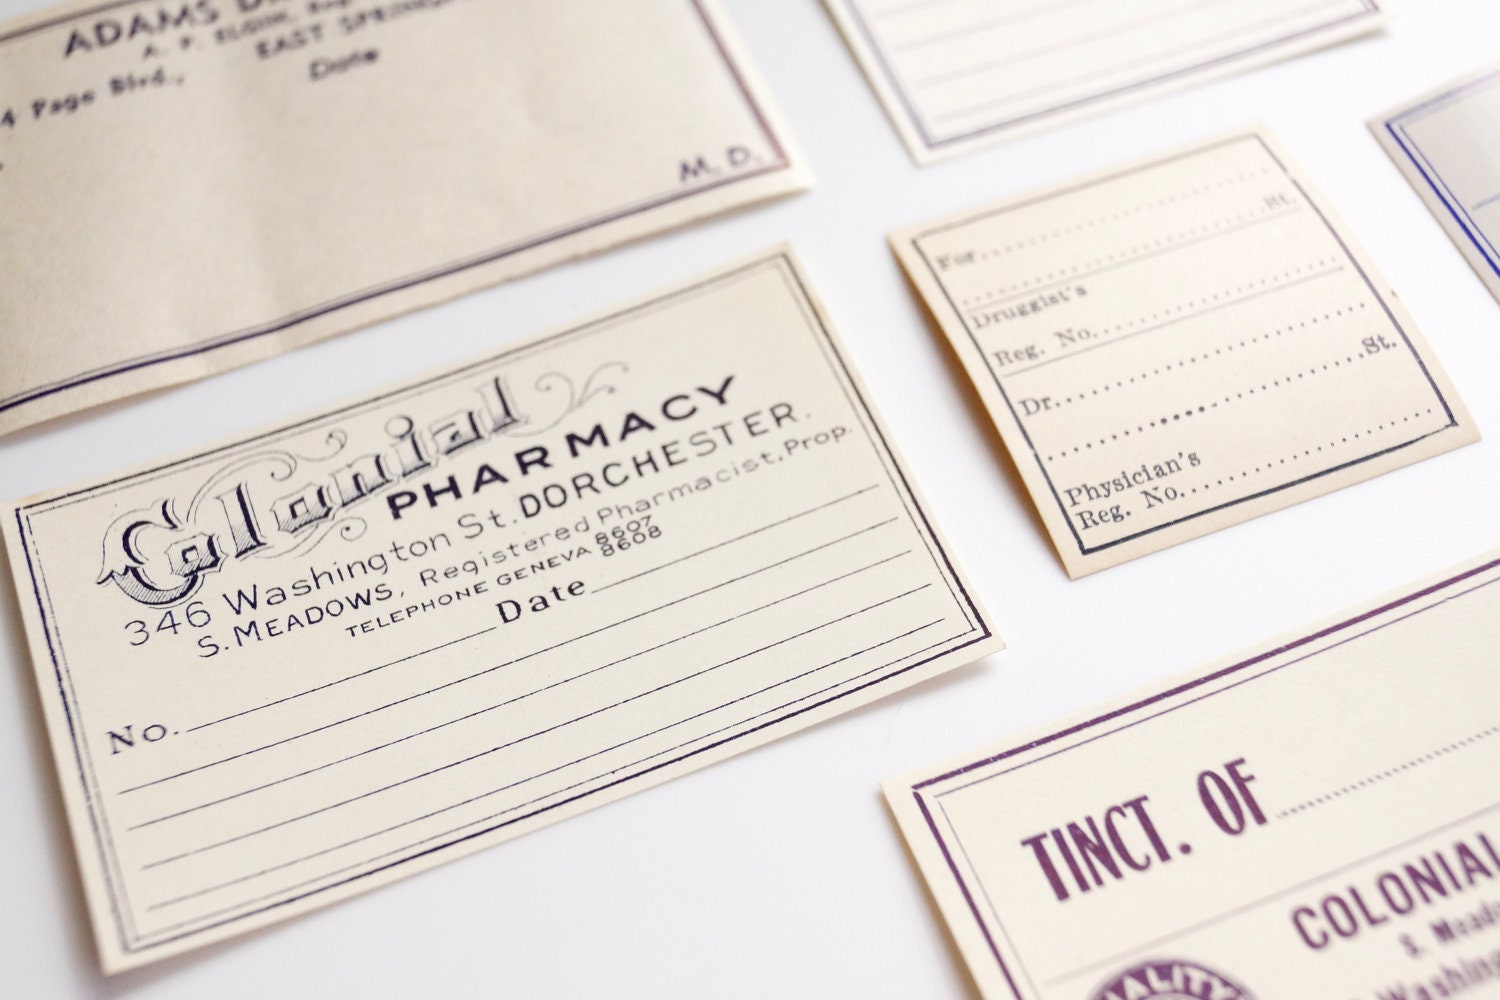 ADAMS
A. F. ELGIN,
4 Page Blvd., EAST
Date
M. D.
Colonial
PHARMACY
346 Washington St. DORCHESTER.
S. MEADOWS, Registered Pharmacist, Prop.
TELEPHONE GENEVA 8607
8608
No. Date
For
St.
Druggist's
Reg. No.
Dr.
St.
Physician's
Reg. No.
TINCT. OF
COLONIAL
S. Meado
Washing
ALITY